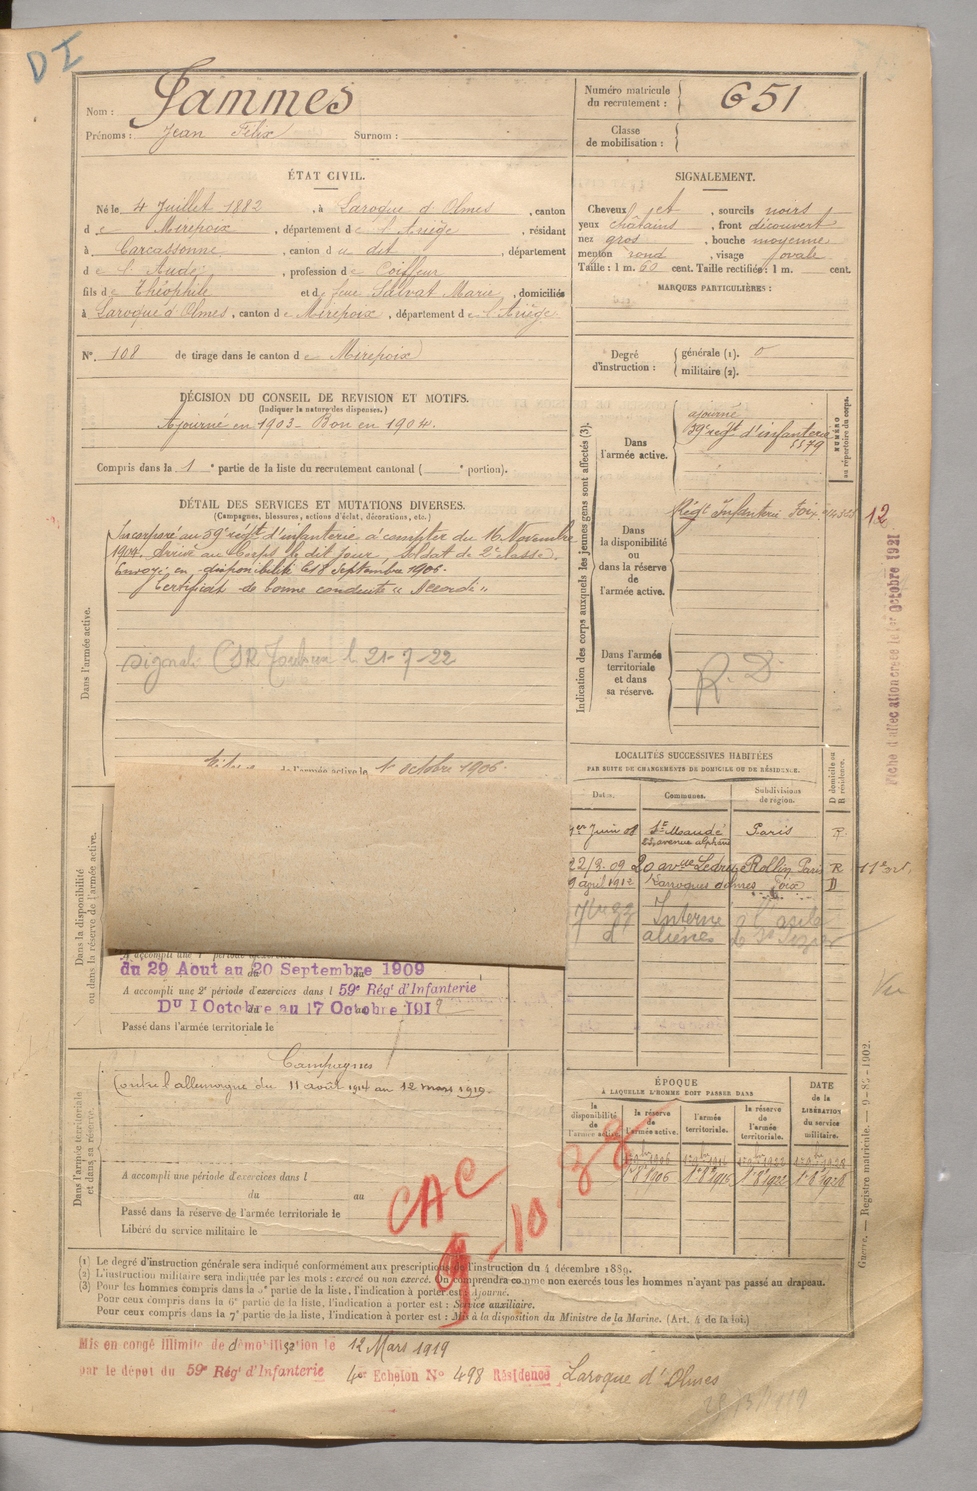 DI
Nom : Jammes
Prénoms : Jean Félix Surnom :
Numéro matricule
du recrutement : 651
Classe
de mobilisation :
ÉTAT CIVIL.
Né le 4 Juillet 1882, à Laroque d'Olmes, canton
de Mirepoix, département de l'Ariège, résidant
à Carcassonne, canton du dit, département
de l'Aude, profession de Coiffeur
fils de Théophile et de feue Salvat Marie, domiciliés
à Laroque d'Olmes, canton de Mirepoix, département de l'Ariège
N°. 108 de tirage dans le canton de Mirepoix
SIGNALEMENT.
Cheveux et, sourcils noirs
yeux châtains, front découvert
nez gros, bouche moyenne
menton rond, visage ovale
Taille : 1 m. 60 cent. Taille rectifiée : 1 m. cent.
MARQUES PARTICULIÈRES :
Degré
d'instruction :
générale (1). 0
militaire (2).
DÉCISION DU CONSEIL DE REVISION ET MOTIFS.
(Indiquer la nature des dispenses.)
Ajourné en 1903 - Bon en 1904.
Compris dans la 1e partie de la liste du recrutement cantonal ( e portion).
DÉTAIL DES SERVICES ET MUTATIONS DIVERSES.
(Campagnes, blessures, actions d'éclat, décorations, etc.)
Dans l'armée active.
Incorporé au 59e régt d'infanterie à compter du 16 Novembre
1904. Arrivé au Corps le dit jour, soldat de 2e classe.
Envoyé en disponibilité le 18 Septembre 1905.
Certificat de bonne conduite "Accordé"
signalé 21-7-22
de l'armée active le 1r octobre 1906.
Indication des corps auxquels les jeunes gens sont affectés (3).
Dans
l'armée active.
ajourné
59e régt d'infanterie
5579
NUMÉRO
au répertoire du corps.
Dans
la disponibilité
ou
dans la réserve
de
l'armée active.
Régt Infanterie Foix
12
Fiche d'affectation créée le 1er octobre 1921
Dans l'armée
territoriale
et dans
sa réserve.
R. D
LOCALITÉS SUCCESSIVES HABITÉES
PAR SUITE DE CHANGEMENTS DE DOMICILE OU DE RÉSIDENCE.
Dates. Communes. Subdivisions
de région. D domicile ou
R résidence.
1er Juin 08 St Mandé Paris R
22/3.09 20 avue Ledru Rollin Paris R
9 août 1912 Larroque d'olmes Foix D
Interné à l'asile
d'aliénés de St Lizier
Vu
Dans la disponibilité
ou dans la réserve de l'armée active.
A accompli une 1e période d'exercices
du 29 Aout au 20 Septembre 1909
A accompli une 2e période d'exercices dans l 59e Régt d'Infanterie
Du 1 Octobre au 17 Octobre 1912
Passé dans l'armée territoriale le
Dans l'armée territoriale
et dans sa réserve.
Campagnes
Contre l'allemagne du 11 août 1914 au 12 mars 1919.
A accompli une période d'exercices dans l
du au
Passé dans la réserve de l'armée territoriale le
Libéré du service militaire le
CAC
9-10-38
ÉPOQUE
À LAQUELLE L'HOMME DOIT PASSER DANS
la
disponibilité
de
l'armée active. la réserve
de
l'armée active. l'armée
territoriale. la réserve
de
l'armée
territoriale. DATE
de la
LIBÉRATION
du service
militaire.
Guerre. — Registre matricule. — 9-83-1902.
(1) Le degré d'instruction générale sera indiqué conformément aux prescriptions de l'instruction du 4 décembre 1889.
(2) L'instruction militaire sera indiquée par les mots : exercé ou non exercé. On comprendra comme non exercés tous les hommes n'ayant pas passé au drapeau.
(3) Pour les hommes compris dans la 5e partie de la liste, l'indication à porter est : Ajourné.
Pour ceux compris dans la 6e partie de la liste, l'indication à porter est : Service auxiliaire.
Pour ceux compris dans la 7e partie de la liste, l'indication à porter est : Mis à la disposition du Ministre de la Marine. (Art. 4 de la loi.)
Mis en congé illimité de démobilisation le 12 Mars 1919
par le dépot du 59e Régt d'Infanterie 4e Echelon N° 498 Résidence Laroque d'Olmes